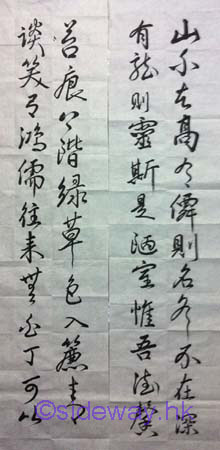 山不在高有僊則名水不在深
有龍則靈斯是陋室惟吾德馨
苔痕上階綠草色入簾青
談笑有鴻儒往來無白丁可以
©sideway.hk